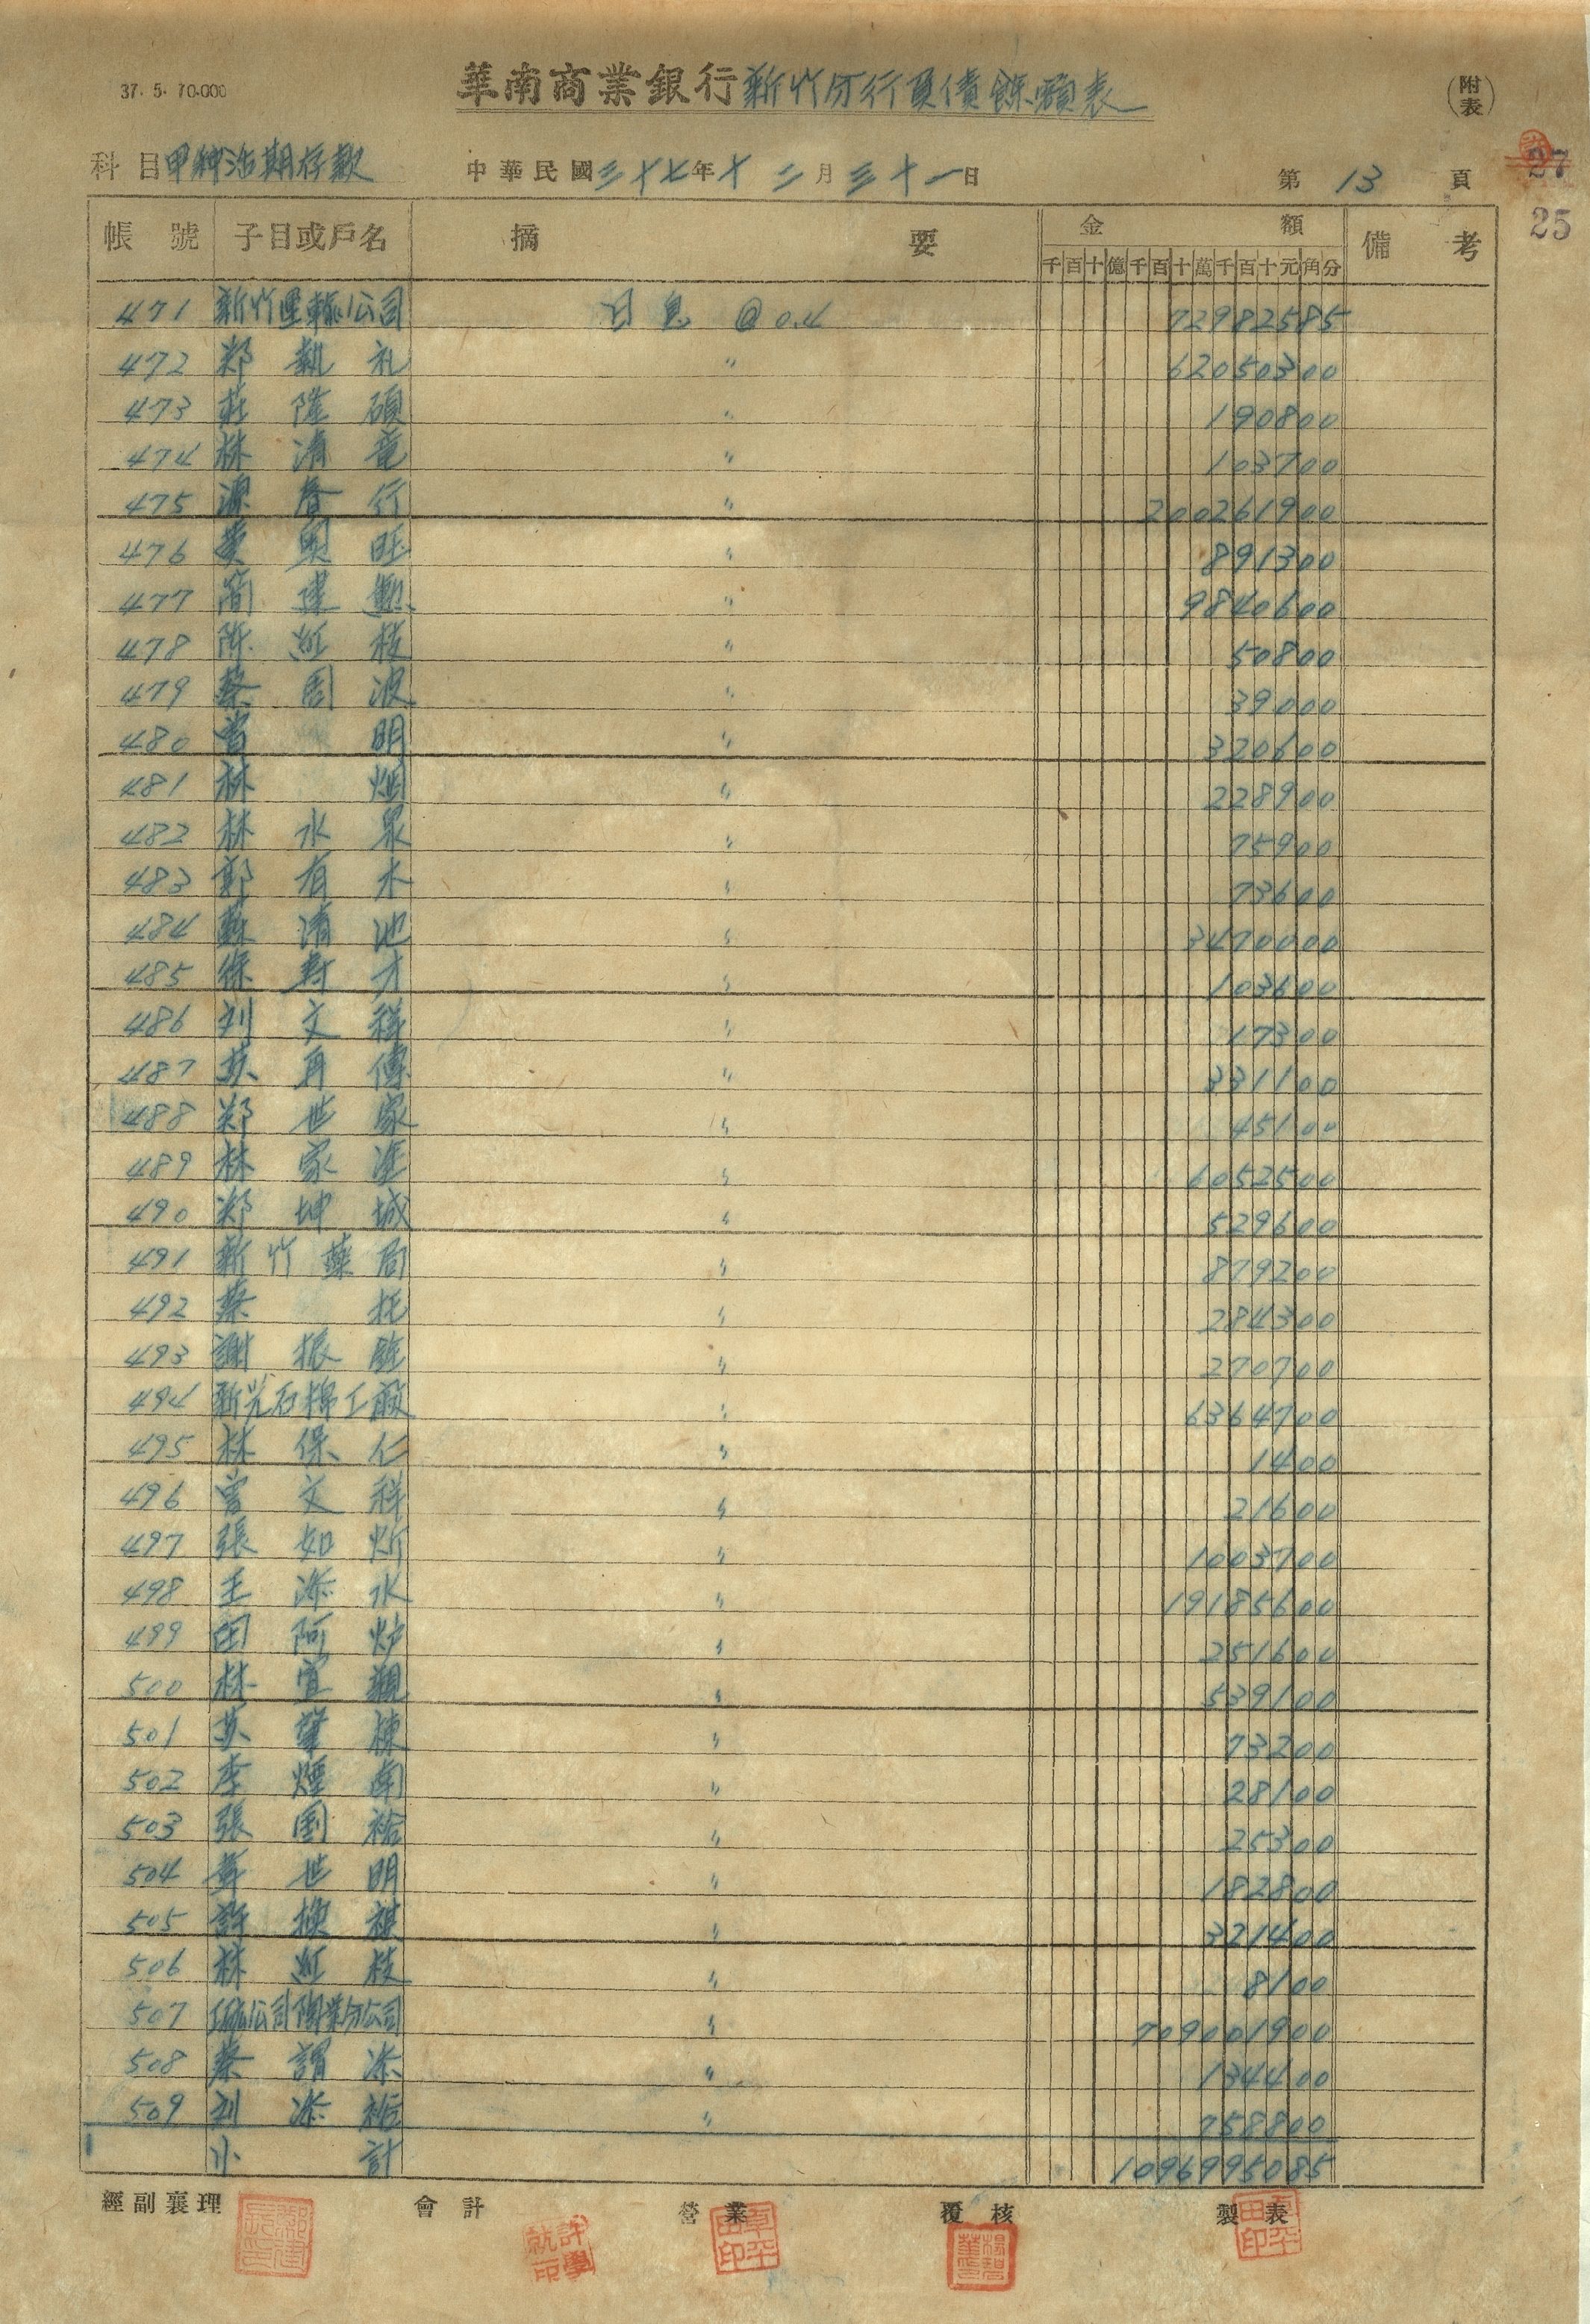 37. 5. 70.000
華南商業銀行新竹分行負債餘額表
(附表)
科目甲種活期存款 中華民國三十七年十二月三十一日 第 13 頁
27
25
帳號 子目或戶名 摘要 金額 備考
千百十億千百十萬千百十元角分
471 新竹運輸公司 日息 @0.4 72982585
472 鄭執礼 〃 62050300
473 莊隆碩 〃 190800
474 林清竜 〃 103700
475 源春行 〃 200261900
476 黄興旺 〃 891300
477 簡達勲 〃 9840600
478 陳紅枝 〃 50800
479 蔡國波 〃 39000
480 曾明 〃 320600
481 林烟 〃 228900
482 林水泉 〃 75900
483 鄭有木 〃 73600
484 蘇清池 〃 3470000
485 徐寿才 〃 103600
486 刘文祥 〃 17300
487 苏再傳 〃 331100
488 鄭世家 〃 45100
489 林家逢 〃 6052500
490 鄭坤城 〃 529600
491 新竹藥局 〃 879200
492 蔡托 〃 284300
493 謝振 〃 270700
494 新光石棉工廠 〃 6364700
495 林保仁 〃 1400
496 曾文祥 〃 21600
497 張如炘 〃 1003700
498 王添水 〃 19185600
499 田阿炉 〃 251600
500 林宜觀 〃 539100
501 苏肇棟 〃 73200
502 李煙南 〃 28100
503 張国裕 〃 25300
504 世明 〃 182800
505 許換祺 〃 321400
506 林紅枝 〃 8100
507 工礦公司陶業分公司 〃 709001900
508 蔡謂添 〃 134400
509 刘添裕 〃 758800
小計 1096995085
經副襄理 會計 營業 覆核 製表
許學就印
卓平田印
卓平田印